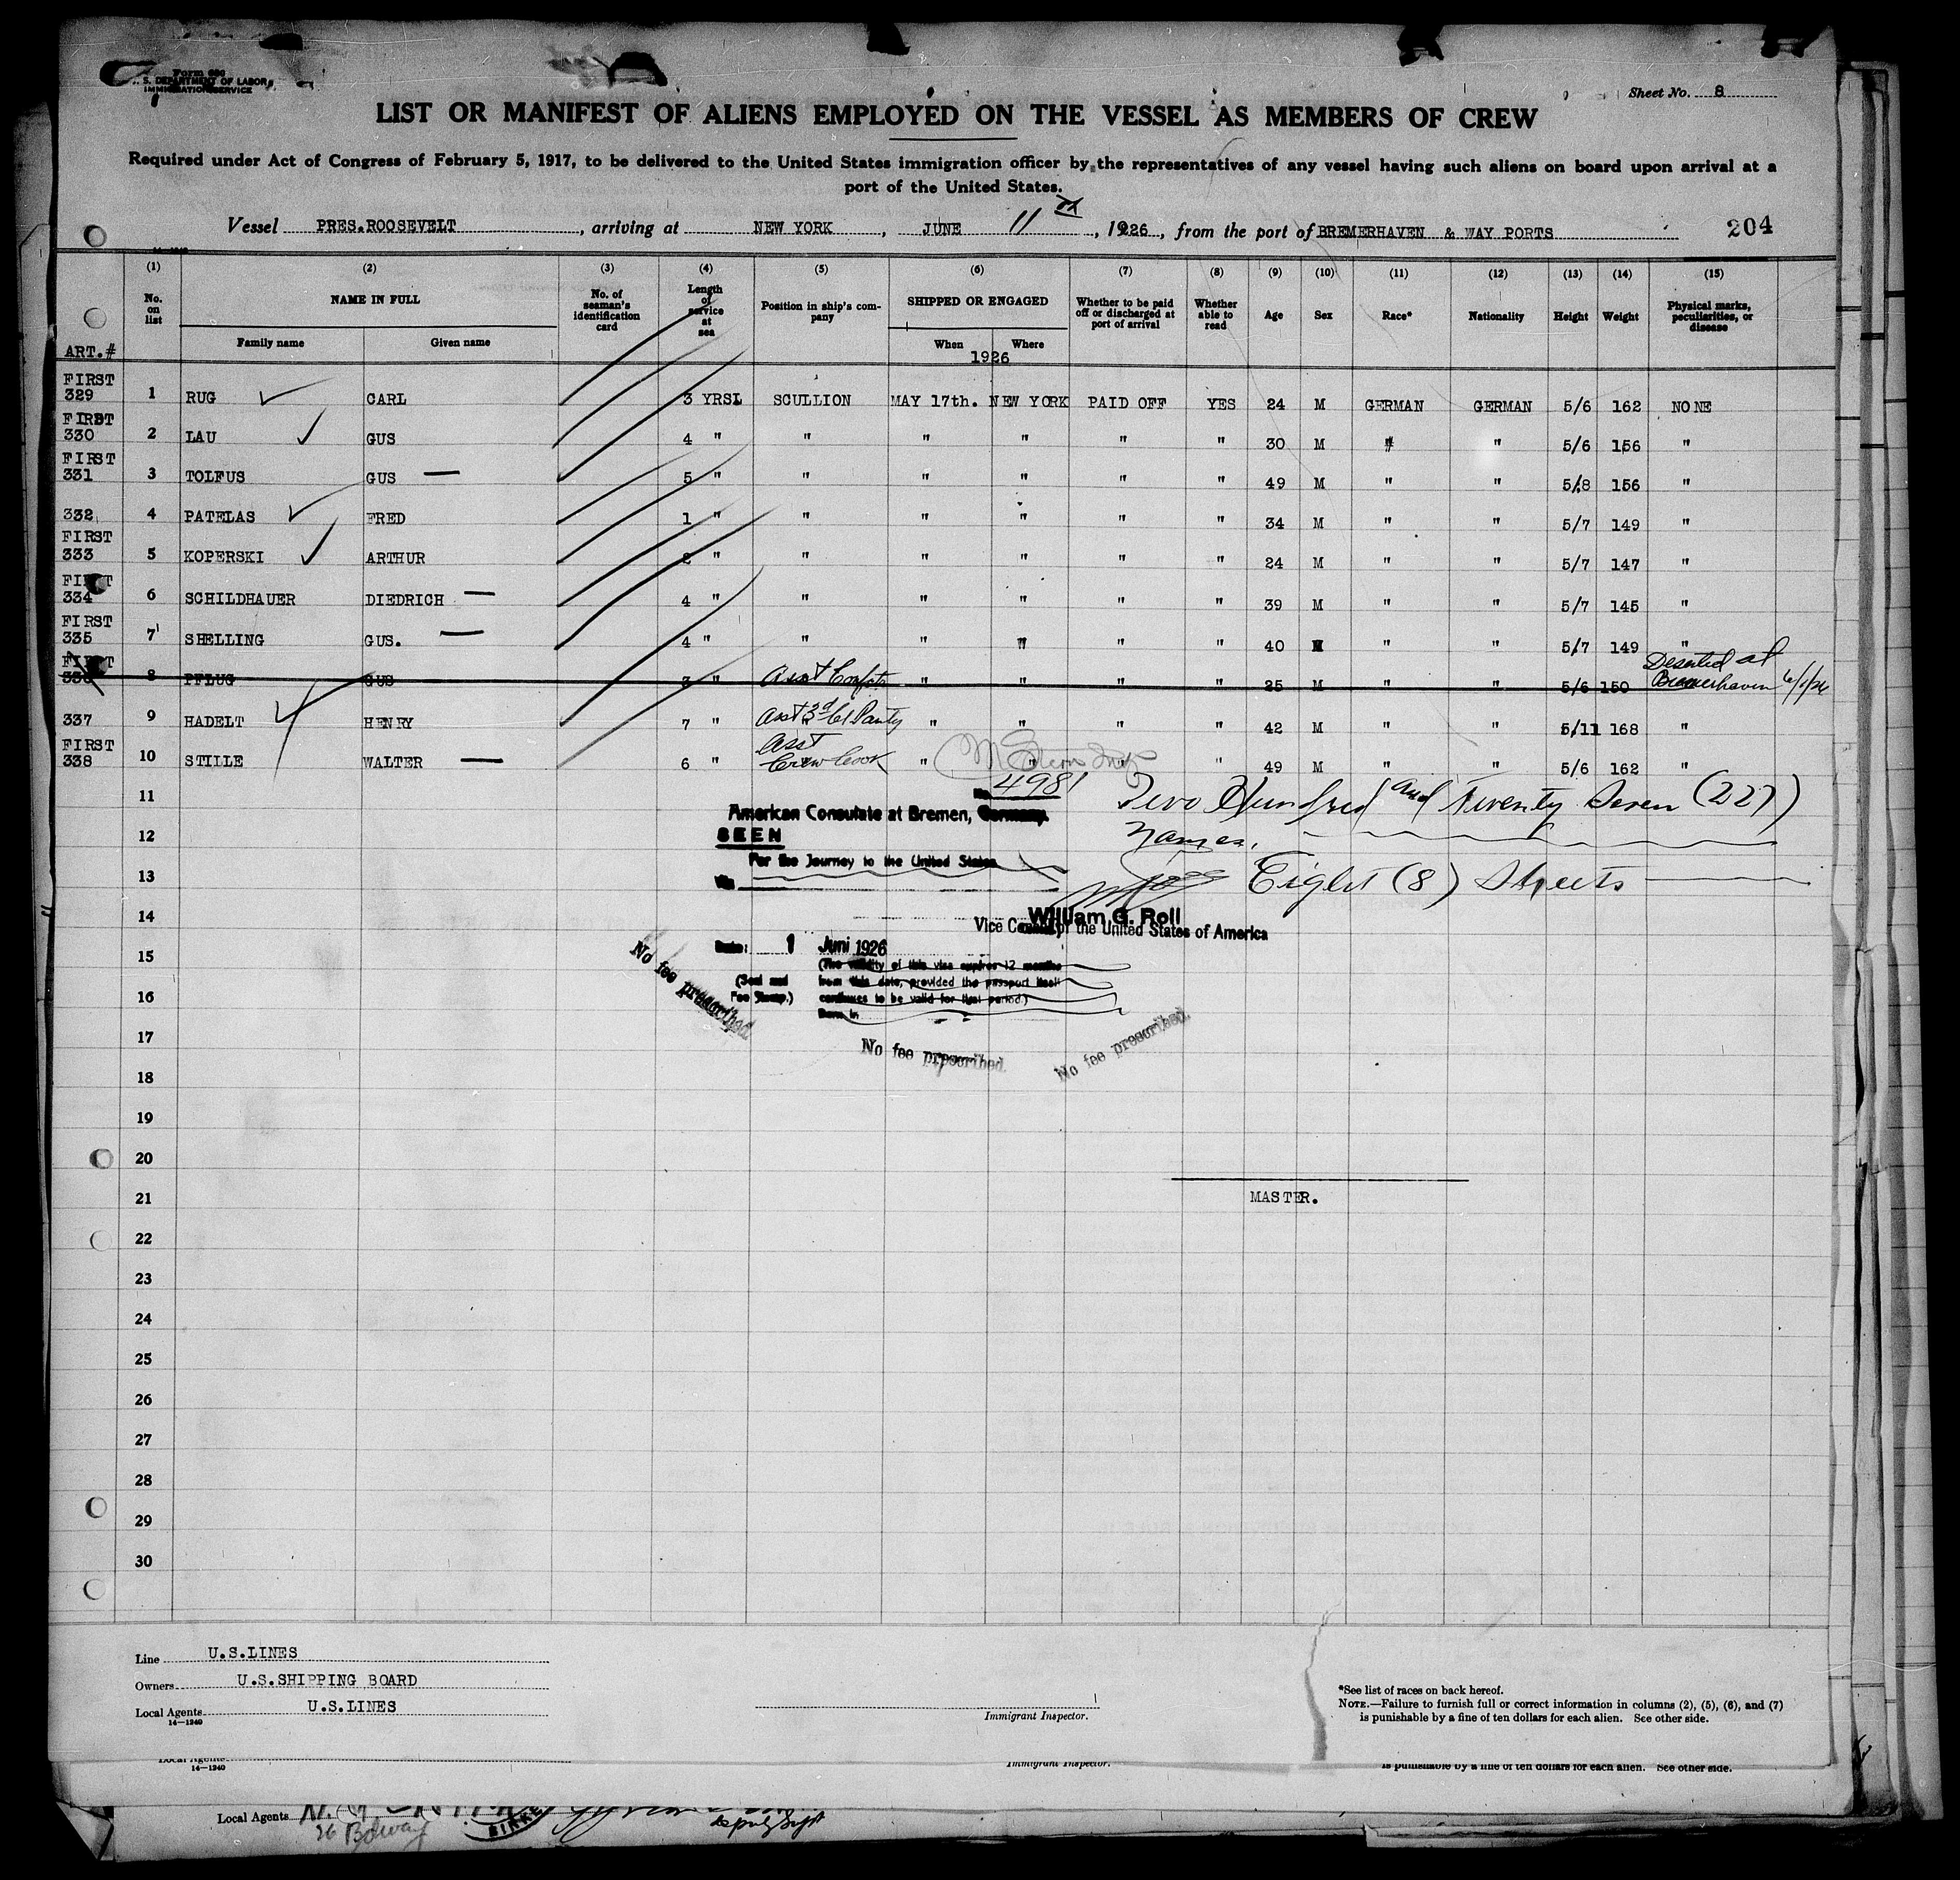 Form 680
U. S. DEPARTMENT OF LABOR
IMMIGRATION SERVICE
Sheet No. 8
LIST OR MANIFEST OF ALIENS EMPLOYED ON THE VESSEL AS MEMBERS OF CREW
Required under Act of Congress of February 5, 1917, to be delivered to the United States immigration officer by the representatives of any vessel having such aliens on board upon arrival at a
port of the United States.
Vessel PRES.ROOSEVELT, arriving at NEW YORK, JUNE 11, 1926, from the port of BREMERHAVEN & WAY PORTS
204
(1) (2) (3) (4) (5) (6) (7) (8) (9) (10) (11) (12) (13) (14) (15)
ART.# No. on list NAME IN FULL Family name Given name No. of seaman's identification card Length of service at sea Position in ship's company SHIPPED OR ENGAGED When Where 1926 Whether to be paid off or discharged at port of arrival Whether able to read Age Sex Race* Nationality Height Weight Physical marks, peculiarities, or disease
FIRST 329 1 RUG CARL 3 YRSL SCULLION MAY 17th. NEW YORK PAID OFF YES 24 M GERMAN GERMAN 5/6 162 NONE
FIRST 330 2 LAU GUS 4 " " " " " " 30 M " " 5/6 156 "
FIRST 331 3 TOLFUS GUS — 5 " " " " " " 49 M " " 5/8 156 "
332 4 PATELAS FRED 1 " " " " " " 34 M " " 5/7 149 "
FIRST 333 5 KOPERSKI ARTHUR 2 " " " " " " 24 M " " 5/7 147 "
FIRST 334 6 SCHILDHAUER DIEDRICH — 4 " " " " " " 39 M " " 5/7 145 "
FIRST 335 7 SHELLING GUS. — 4 " " " " " " 40 M " " 5/7 149 "
FIRST 336 8 PFLUG GUS 3 " Asst " " " " 25 M " " 5/6 150 Deserted at Bremerhaven 6/1/26
337 9 HADELT HENRY 7 " Asst 3d Cl Pantry " " " " 42 M " " 5/11 168 "
FIRST 338 10 STILLE WALTER — 6 " Asst Crew Cook " " " " 49 M " " 5/6 162 "
11
No. 4981
Two Hundred and Twenty Seven (227)
American Consulate at Bremen, Germany.
12
SEEN
names.
For the Journey to the United States
13
Eight (8) Sheets
14
William G. Roll
Vice Consul of the United States of America
Date: 1 Juni 1926
15
(The validity of this visa expires 12 months
(Seal and from this date, provided the passport itself
16
Fee Stamp.) continues to be valid for that period.)
Born in
No fee prescribed.
17
No fee prescribed.
No fee prescribed.
18
19
20
21
MASTER.
22
23
24
25
26
27
28
29
30
Line U.S.LINES
Owners U.S.SHIPPING BOARD
Local Agents U.S.LINES
14—1240
Immigrant Inspector.
*See list of races on back hereof.
NOTE.—Failure to furnish full or correct information in columns (2), (5), (6), and (7)
is punishable by a fine of ten dollars for each alien. See other side.
Local Agents
14—1240
Immigrant Inspector.
is punishable by a fine of ten dollars for each alien. See other side.
Local Agents
26 Bdway